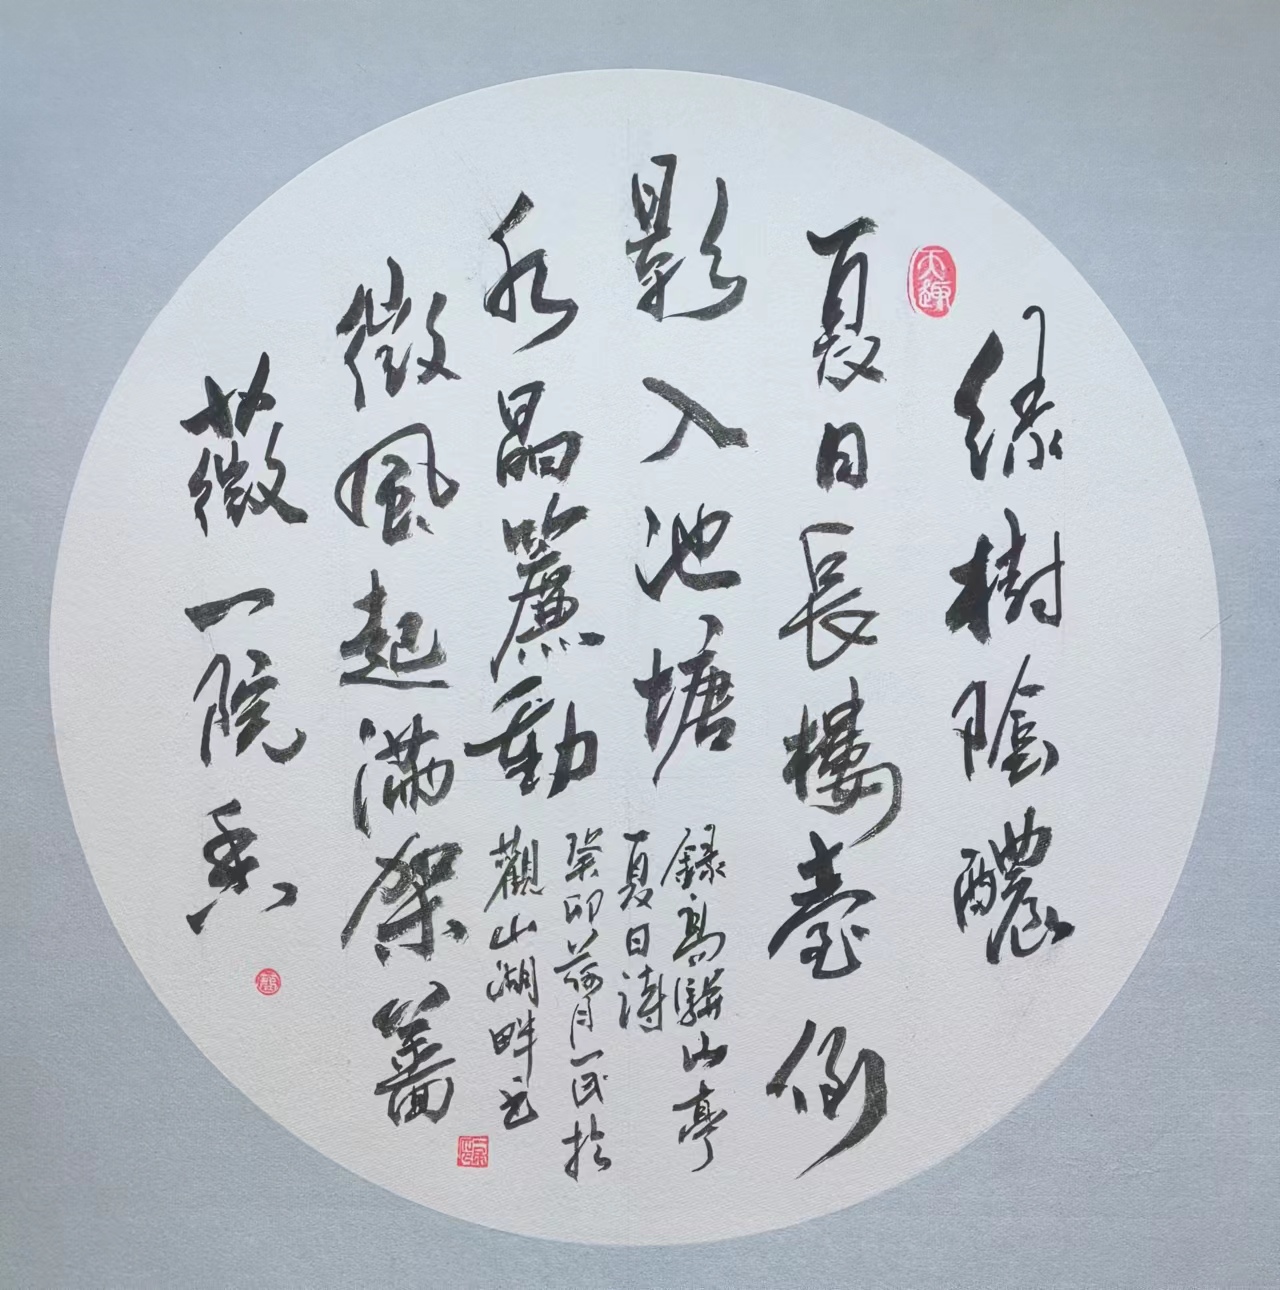 綠樹陰醲
夏日長樓臺倒
影入池塘
水晶簾動
微風起滿架薔
薇一院香
錄高駢山亭
夏日詩
癸卯荷月一民於
觀山湖畔書